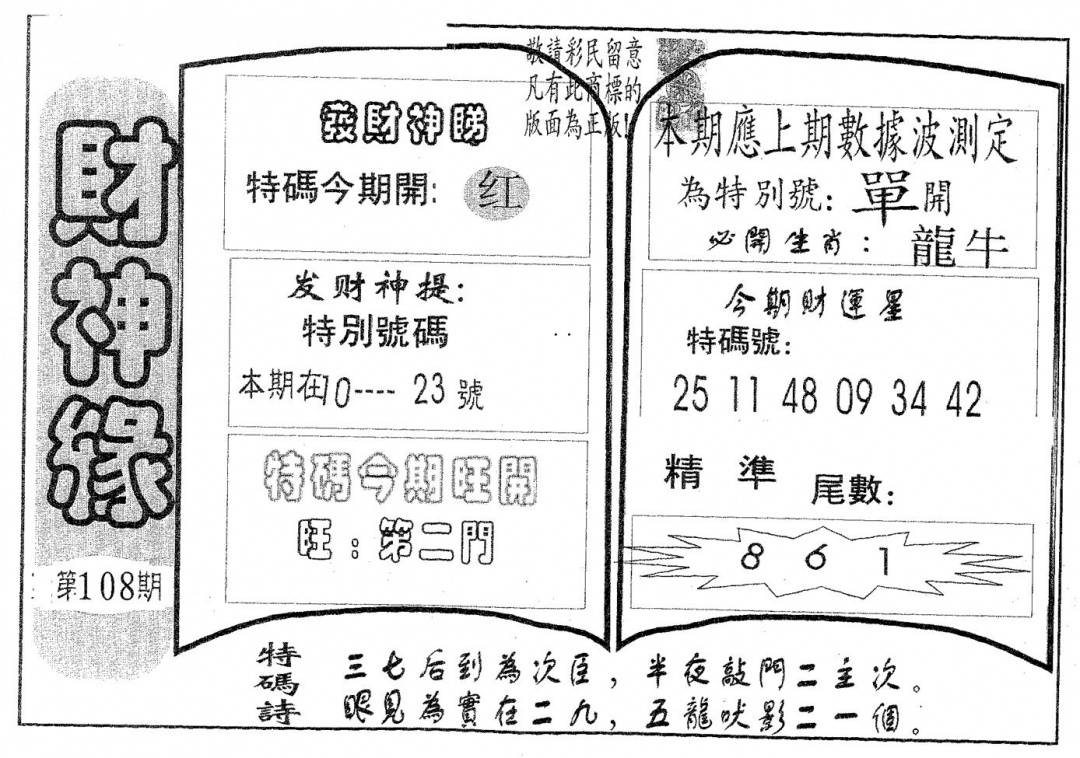 財神緣
第108期
敬請彩民留意
凡有此商標的
版面為正版!
發財神睇
特碼今期開: 红
发财神提:
特別號碼
本期在10---- 23 號
特碼今期旺開
旺:第二門
本期應上期數據波測定
為特別號: 單開
必開生肖: 龍牛
今期財運星
特碼號:
25 11 48 09 34 42
精 準 尾數:
8 6 1
特碼詩
三七后到為次臣,半夜敲門二主次。
眼見為實在二九,五龍吠影二一個。